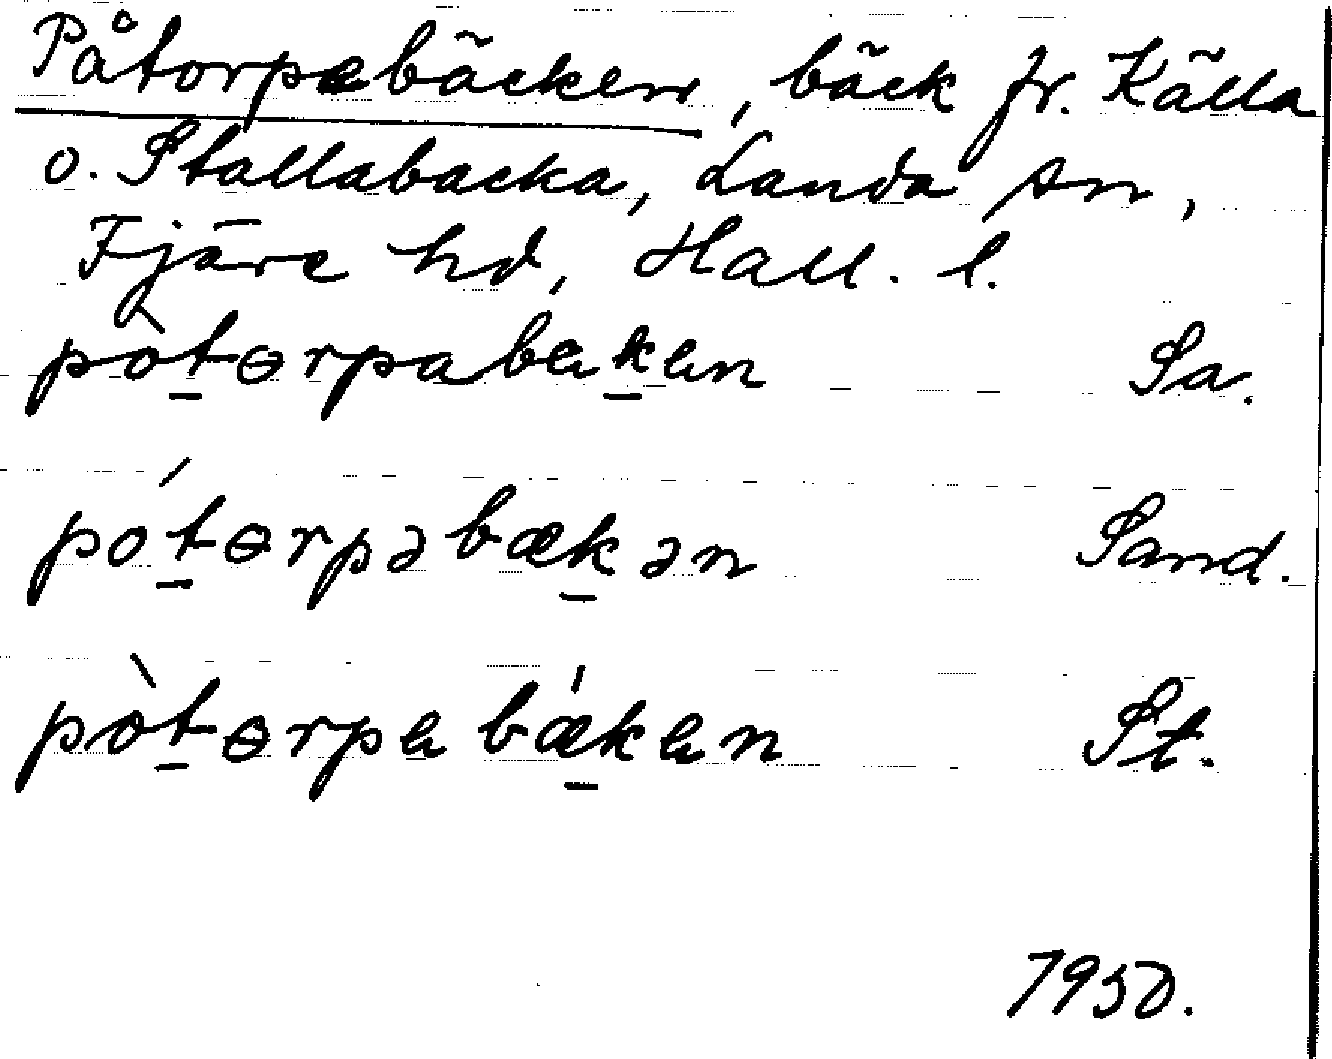 Påtorpebäcken, bäck fr. Källa
o. Stallabacka, Landa sn,
Fjäre hd, Hall. l.
pòtɵrpabekan Sa.
pótɵrpəbækən Sand.
pòtɵrpabækan St.
1950.